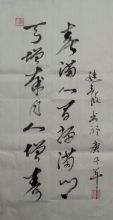 天增岁月人增寿
春满人间福满门
书于庚子年